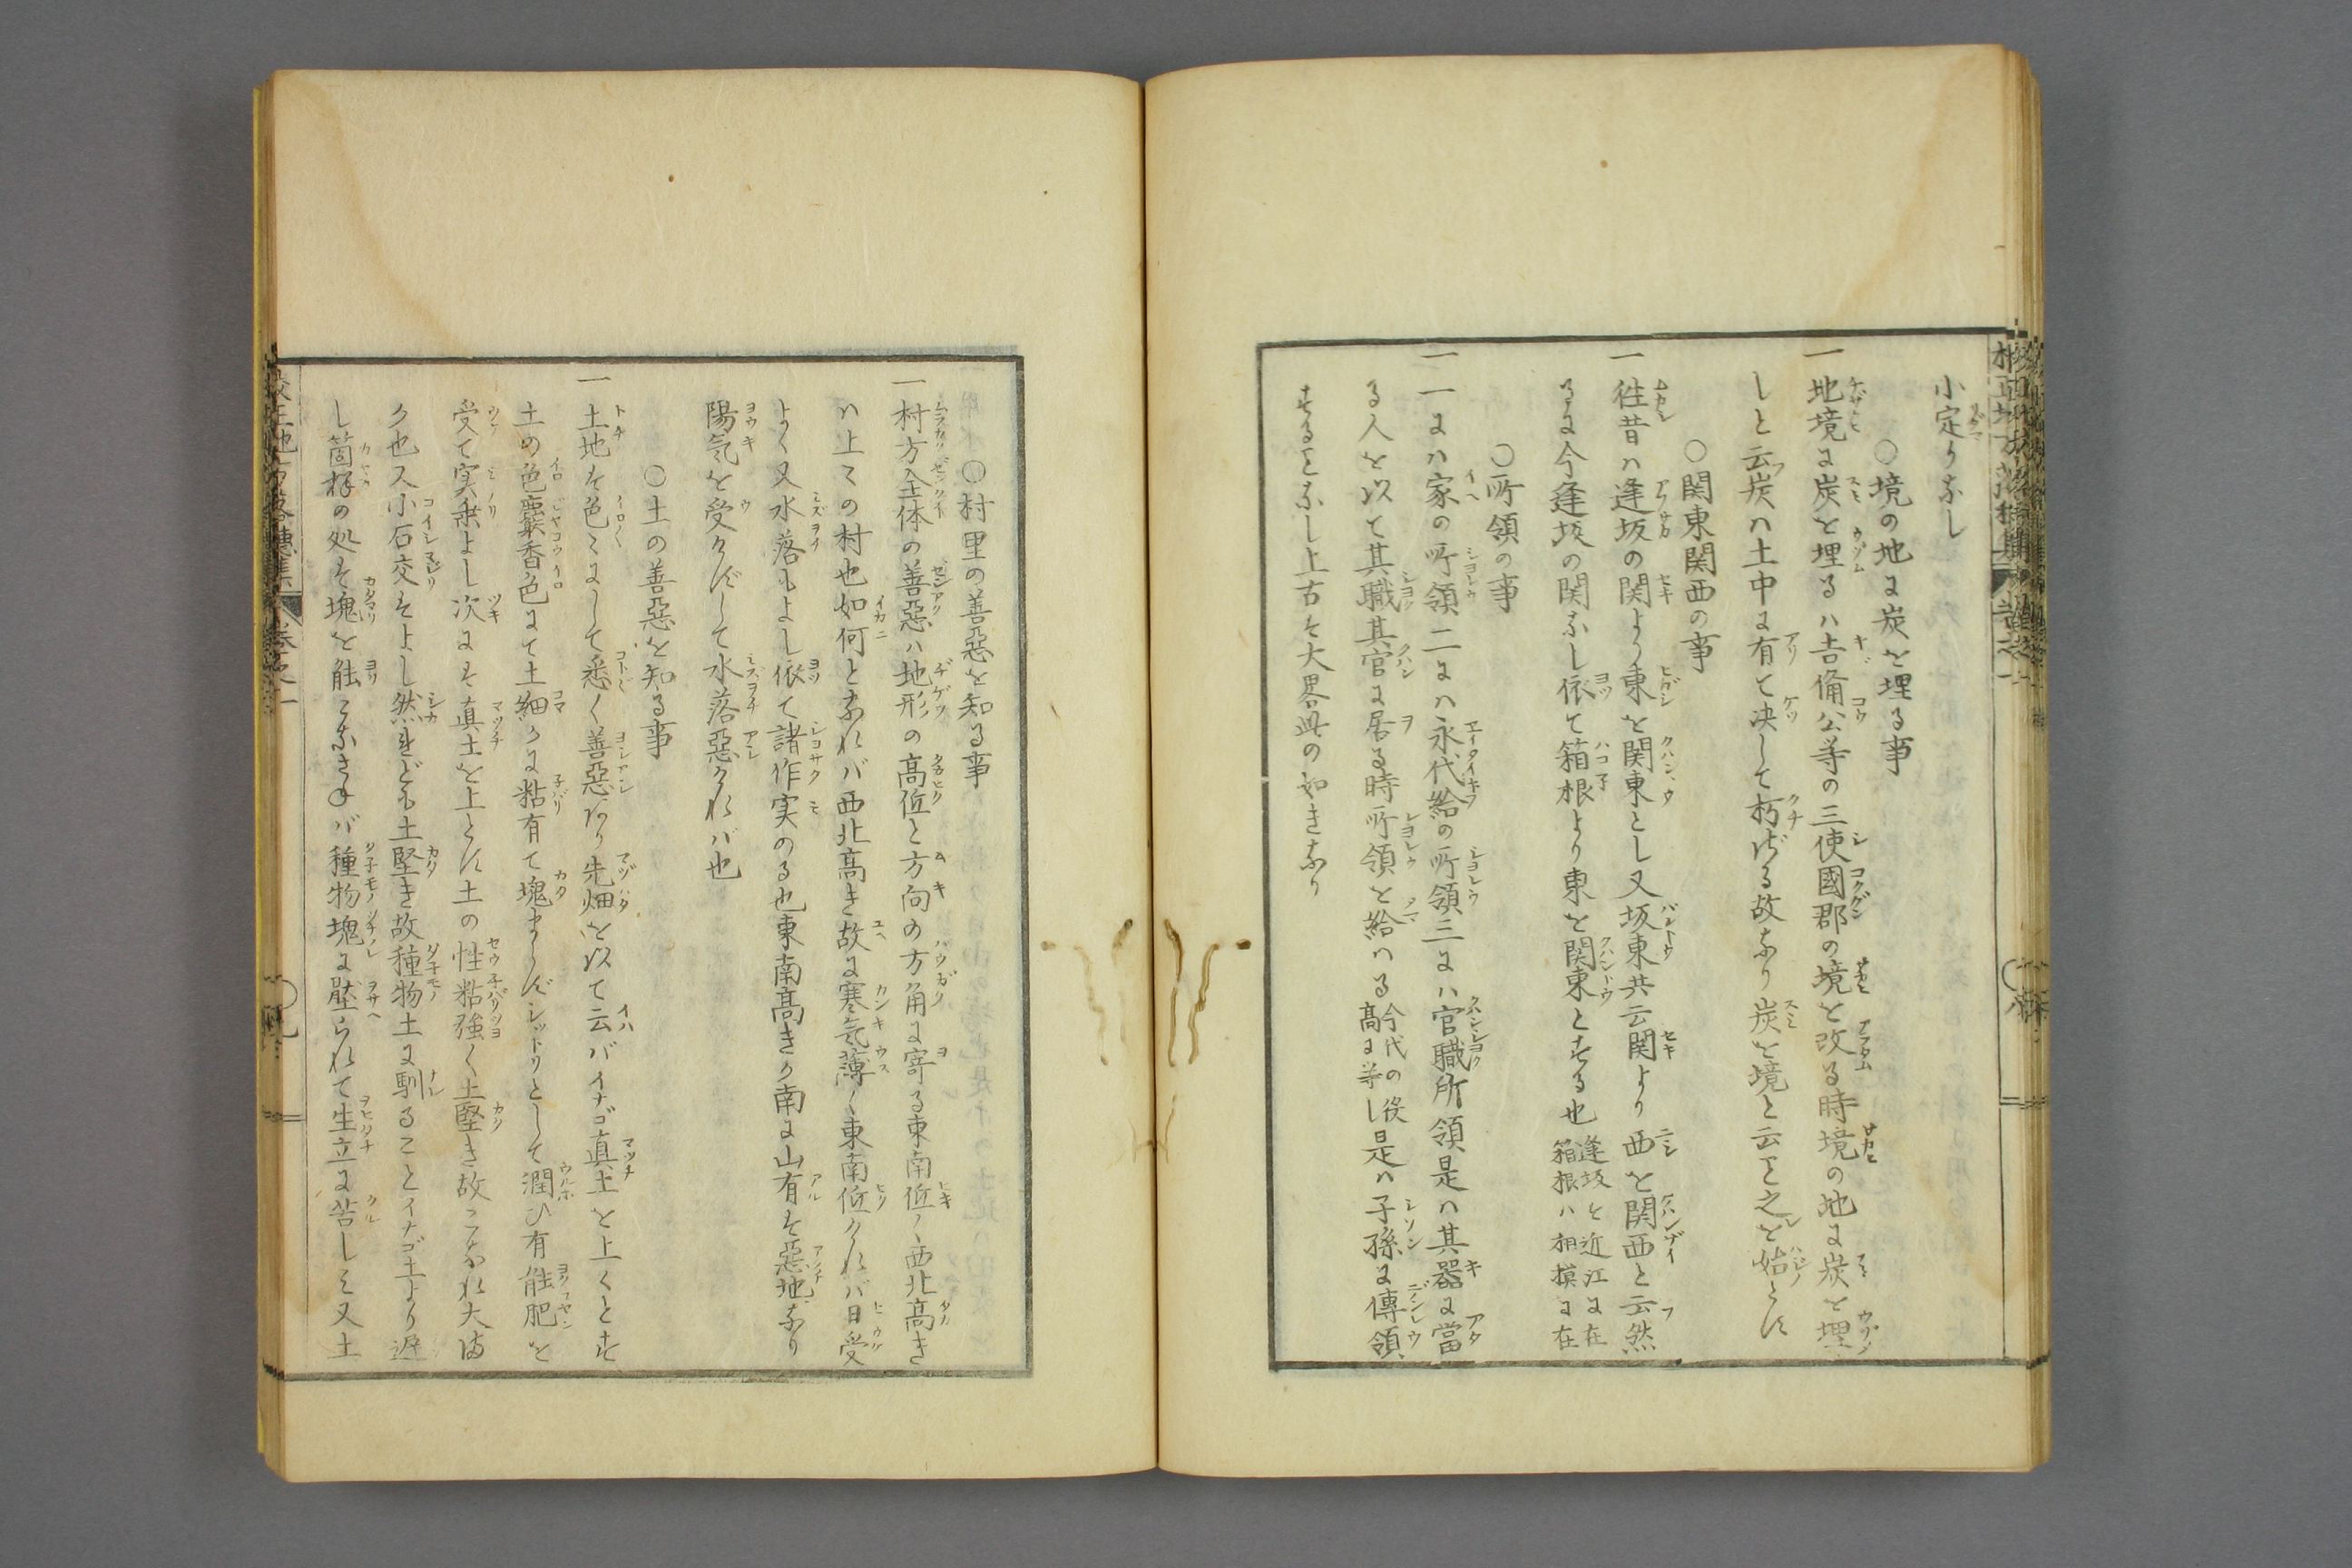 小定りなし
○境の地に炭を埋る事
一地境に炭を埋るハ吉備公等の三使國郡の境を改る時境の地に炭を埋
しと云炭ハ土中に有て决して朽ざる故なり炭を境と云こと之を始とす
○関東関西の事
一徃昔ハ逢坂の関より東を関東とし又坂東共云関より西を関西と云然
るに今逢坂の関なし依て箱根より東を関東とする也 逢坂は近江に在 箱根ハ相摸に在
○所領の事
一一にハ家の所領二にハ永代給の所領三にハ官職所領是ハ其器に當
る人を以て其職其官に居る時所領を給ハる 今代の役 高に等し 是ハ子孫に傳領
することなし上古は大畧此の如きなり
○村里の善惡を知る事
一村方全体の善惡ハ地形の高低と方向の方角に寄る東南低く西北高き
ハ上々の村也如何となれバ西北高き故に寒気薄く東南低けれバ日受
よく又水落もよし依て諸作実のる也東南高きか南に山有は惡地なり
陽気を受けずして水落惡けれバ也
○土の善惡を知る事
一土地は色々にして悉く善惡あり先畑を以て云バイナゴ真土を上々とす
土の色麝香色にて土細かに粘有て塊まらずシットリとして潤ひ有能肥を
受て実乗よし次には真土を上とす土の性粘強く土堅き故こなれ大方
ク也又小石交はよし然れども土堅き故種物土に馴ることイナゴ土より遅
し箇様の処は塊を能こなさねバ種物塊に壓られて生立に苦しミ又土